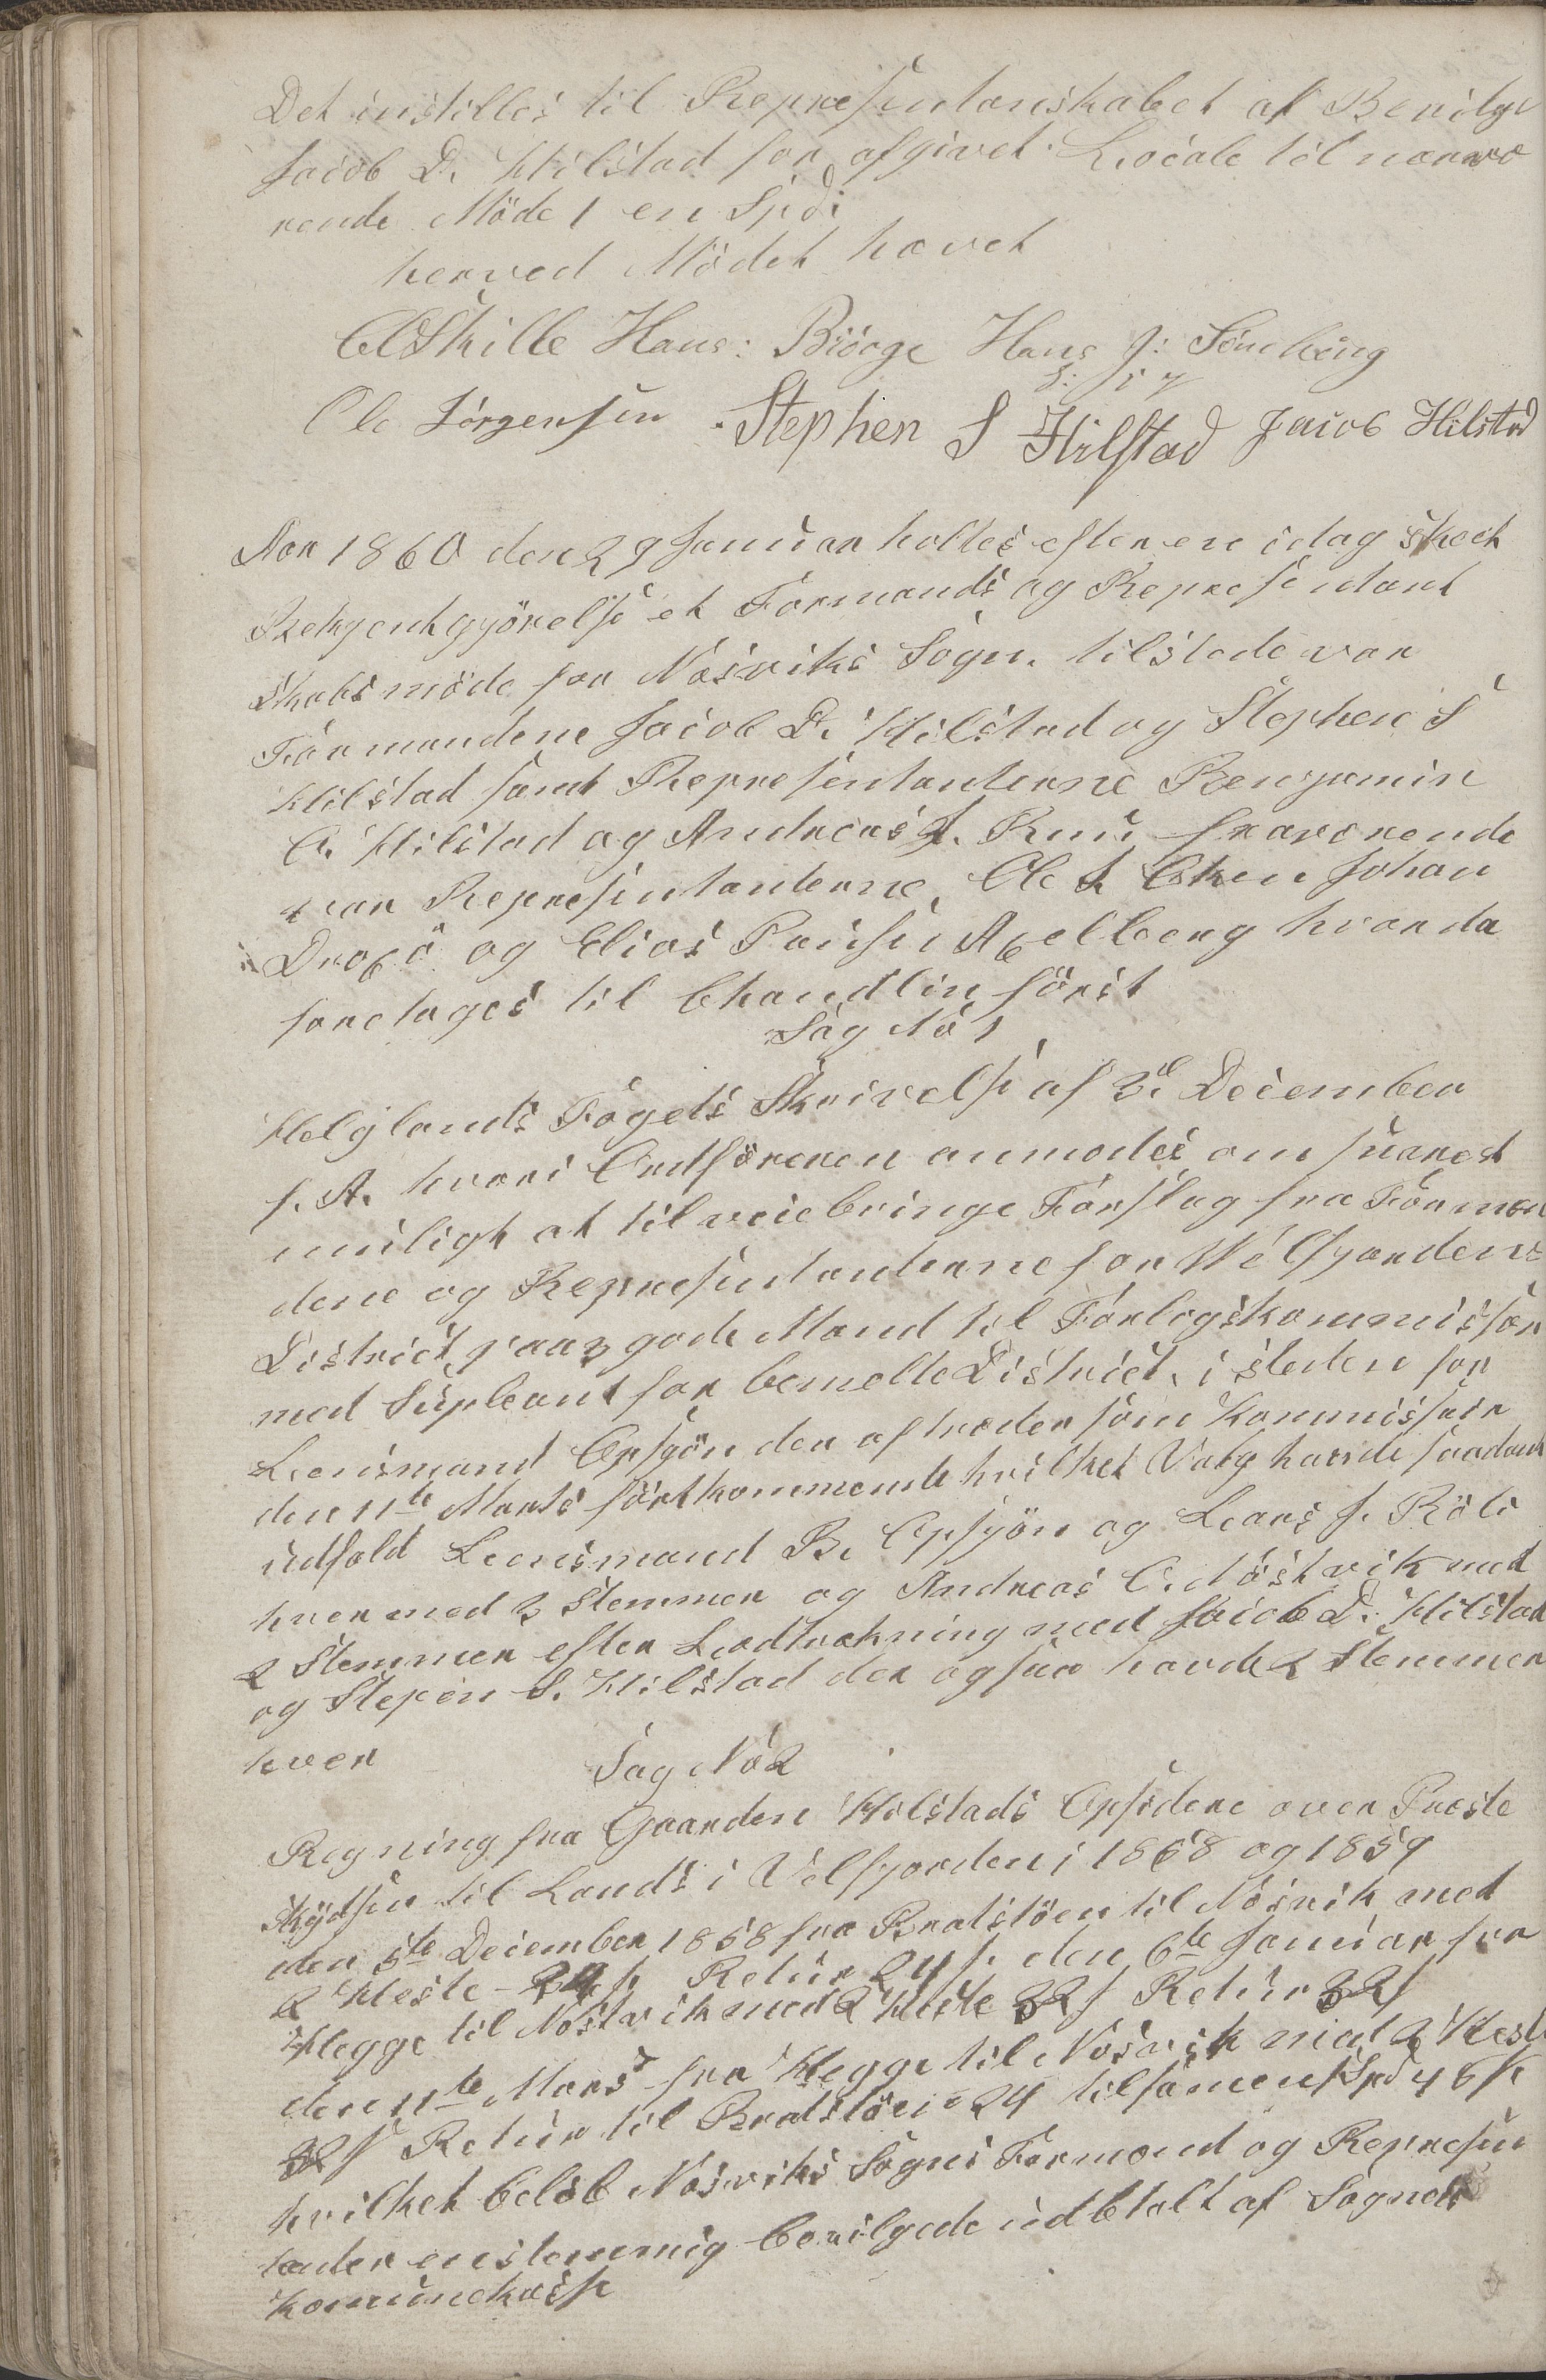 Det instilles til Repræsentanskabet at Bevilge
Jacob D. Hilstad for afgivet Locale til nærvæ
rende Möde 1 en Spd:
herved Mödet hævet
Hans: Biörge Hans J:
Ole Jörgensen Stephen S Hilstad Jacob Hilstad
Aar 1860 den 29 Januar holtes efter en idag skeet
Bekjentgjörelse et Formands og Repræsentant
skabsmöde for Nösviks Sogn. tilstede var
Formændene Jacob D. Hilstad og Stephen S
Hilstad samt Repræsentanterne Benjamin
C. Hilstad og Andreas J. fraværende
var Repræsentanterne, Ole Johan
og Elias Paulsen hvorda
foretoges til Bhandlin först
Sag No 1
Helglands Fogets Skrivelse af 3d December
f. A. hvori Ordföreren anmodes om snarest
muligt at tilveiebringe Forslag fra Formæn
dene og Repræsentanterne for Velfjordens
District, paa 3 gode Mænd til Forligskommissær
med Supleant for bemelte District, i steden for
Lensmand Opsjön der aftræder som Kommissair
den 11te Marts förstkommende hvilket Valg havde saadant
udfald Lensmand B. Opsjön og Lars J. Röli
hver med 3 Stemmer og Andreas C. Nöstvik med
2 Stemmer efter Lodtrækning med Jacob D. Hilstad
og Stepen S. Hilstad der ogsaa havde 2 Stemmer
hver
Sag No 2
Regning fra Gaarden Hilstads Opsidere over Præste
Skydsen til Lands i Velfjorden i 1858 og 1859
den 5te December 1858 fra Bratstöen til Nösvik med
2 Heste - 24 s Retur 24 s. den 6te Januar fra
Hegge til Nöstvik med 2 Heste 32 s Retur 32 s
den 11te Mars fra Hegge til Nösvik med 2 Heste
32 s Retur til Bratstöen 24 tilsamen 1 Spd 46 s
hvilket belöb Nösviks Sogns Formænd og Repræsen
tanter enstemmig bevilgede udbetalt af Sognets
komunekasse